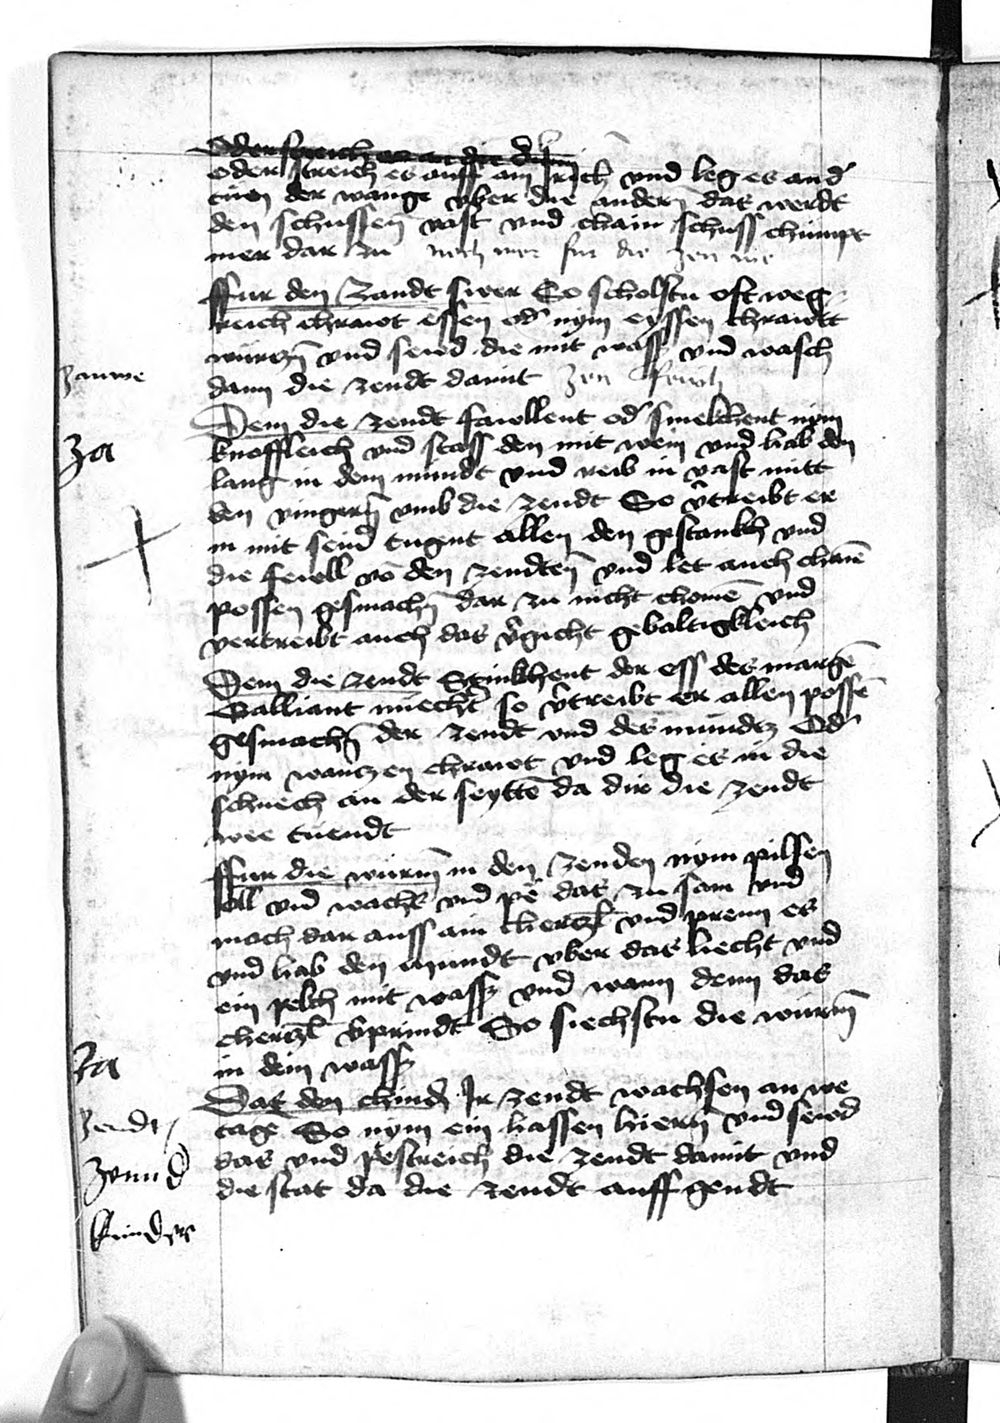 oder streich es auff ain und leg es and
tuen der wange vber die andern das werdt
den schussen vast und chain schuss chumpt
mer dar zu noch mer fur die zen we
ffur den zandt swer So scholstu oft weg
reich chrawt essen od nym eyssen chrawtt
würczn vnd sewd die mit wass vnd wasch
dann die zendt damit zen
zanwe
Dem die zendt fawllent od smekchent nym
za
knoffleich vnd stoss den mit wein vnd hab den
lang in dem mundt vnd reib in vast mitt
den vingern vmb die zendt So vtreibt er
in mit seind tugnt allen den gestankh vnd
die fewll vō den zendten vnd let auch chainē
possen gesmachn dar zu nicht chomē vnd
vertreibt auch das vgicht gebaltigkleich
Dem die zendt Stinkhent der ess des margē
Galliant nuecht so vtreibt er allen possē
gesmachn der zendt vnd des mundtz Od
nym wanczen chrawt vnd leg es in die
schuech an der seyttē da dir die zendt
wee tuendt
ffur die wurm in den zenden nym pilsen
oll vnd wachs vnd pē das zu sam vnd
mach dar auss ain cherczl vnd prenn es
vnd hab den mundt vber das liecht vnd
ein pekch mit wass vnd wann denn das
cherczl vprindt So siechstu die würm
in dem wass
za
Das den chind Ir zendt wachsen an we
zendt
tagē So nym ein hassen hiern vnd sewd
das vnd pestreich die zendt damit vnd
die stat da die zendt auff gendt
kinder